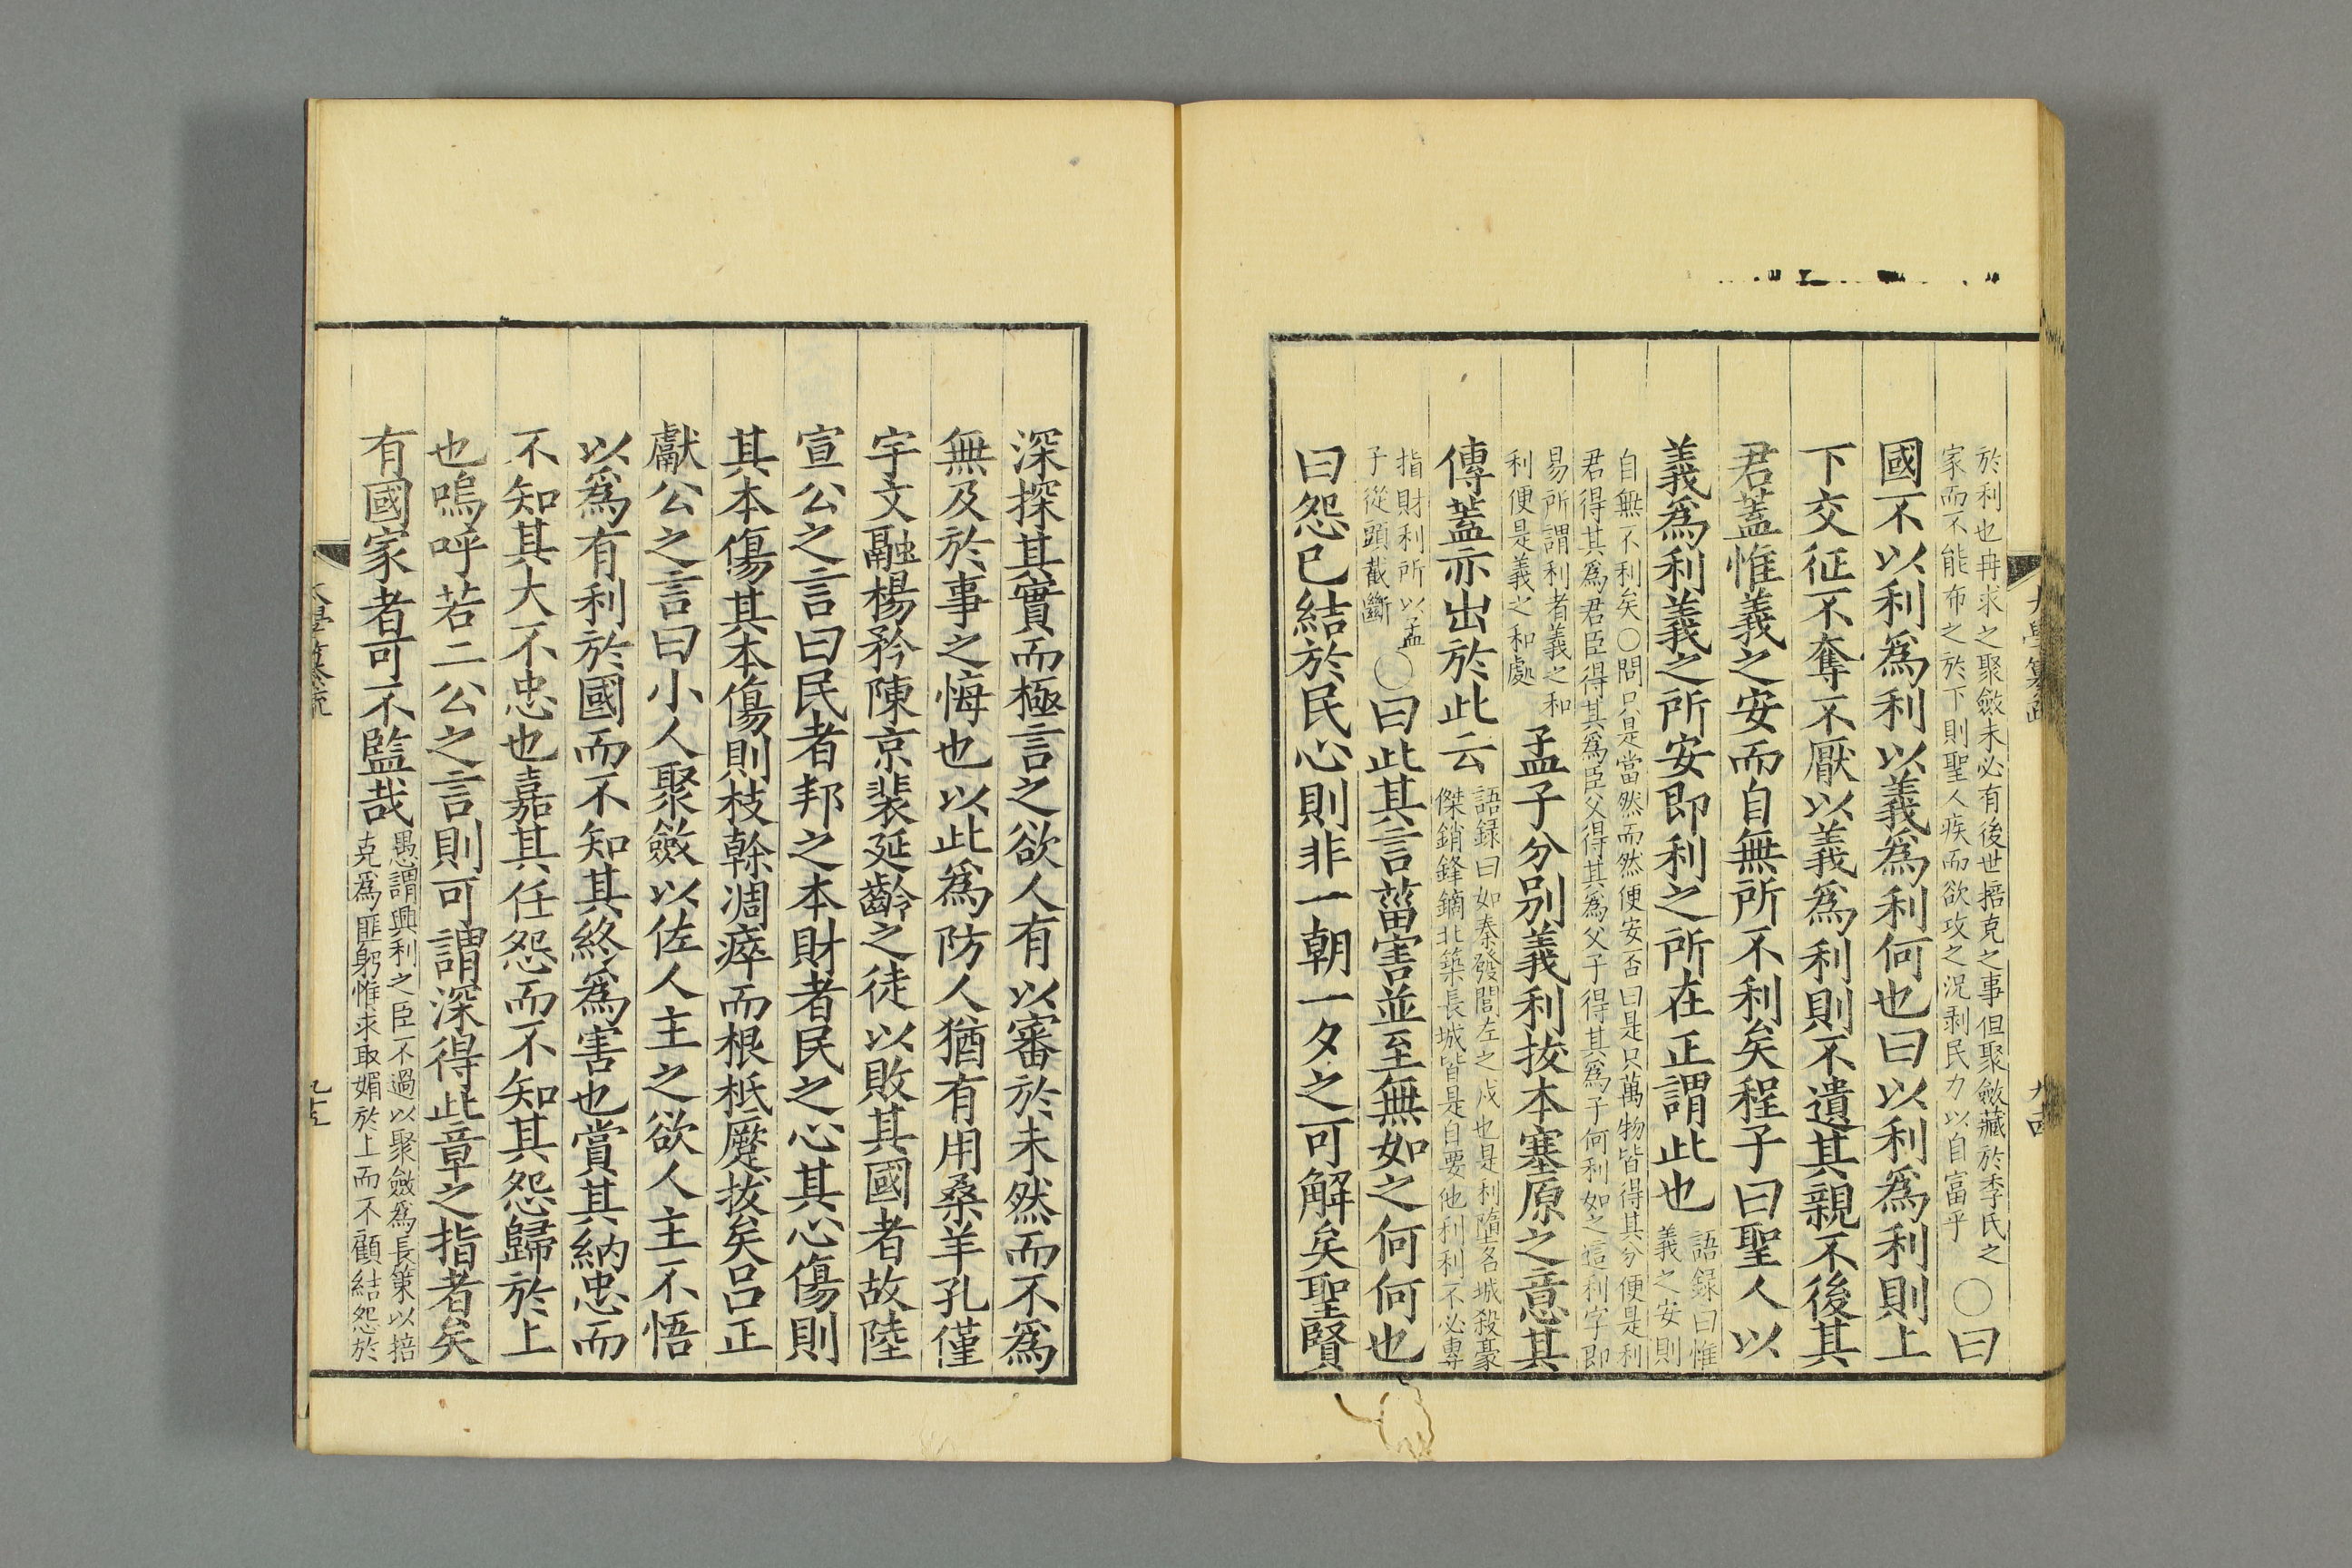 於利也冉求之聚斂未必有後世掊克之事但聚斂藏於季氏之
家而不能布之於下則聖人疾而欲攻之況剥民力以自富乎
○曰
國不以利爲利以義爲利何也曰以利爲利則上
下交征不奪不厭以義爲利則不遺其親不後其
君蓋惟義之安而自無所不利矣程子曰聖人以
義爲利義之所安即利之所在正謂此也
語録曰惟
義之安則
自無不利矣○問只是當然而然便安否曰是只萬物皆得其分便是利
君得其爲君臣得其爲臣父得其爲父子得其爲子何利如之這利字即
易所謂利者義之和
利便是義之和處
孟子分别義利拔本塞原之意其
傳蓋亦出於此云
語録曰如秦發閭左之戍也是利墮名城殺豪
傑銷鋒鏑北築長城皆是自要他利利不必專
指財利所以孟
子從頭截斷
○曰此其言菑害並至無如之何何也
曰怨已結於民心則非一朝一夕之可解矣聖賢
深探其實而極言之欲人有以審於未然而不爲
無及於事之悔也以此爲防人猶有用桑羊孔僅
宇文融楊矜陳京裴延齡之徒以敗其國者故陸
宣公之言曰民者邦之本財者民之心其心傷則
其本傷其本傷則枝幹凋瘁而根柢蹷拔矣吕正
獻公之言曰小人聚斂以佐人主之欲人主不悟
以爲有利於國而不知其終爲害也賞其納忠而
不知其大不忠也嘉其任怨而不知其怨歸於上
也嗚呼若二公之言則可謂深得此章之指者矣
有國家者可不監哉
愚謂興利之臣不過以聚斂爲長策以掊
克爲匪躬惟求取媚於上而不顧結怨於